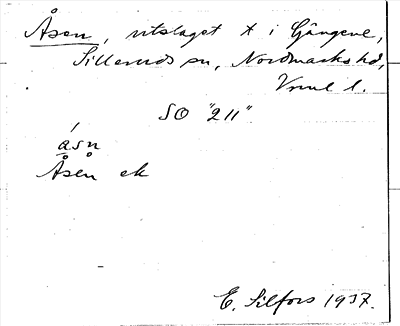 Åsen, utslaget t i Gängene,
Silleruds sn, Nordmarks hd,
Vrml l.
SO "211"
åsn
Åsen ek
E. Silfors 1937.